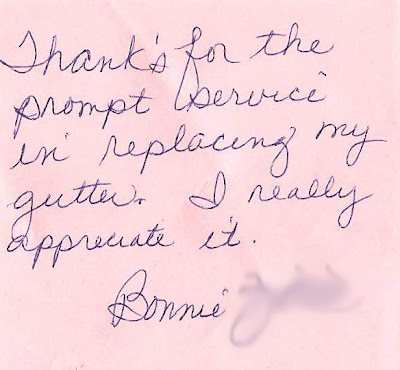 Thank's for the
prompt service
in replacing my
gutter. I really
appreciate it.
Bonnie